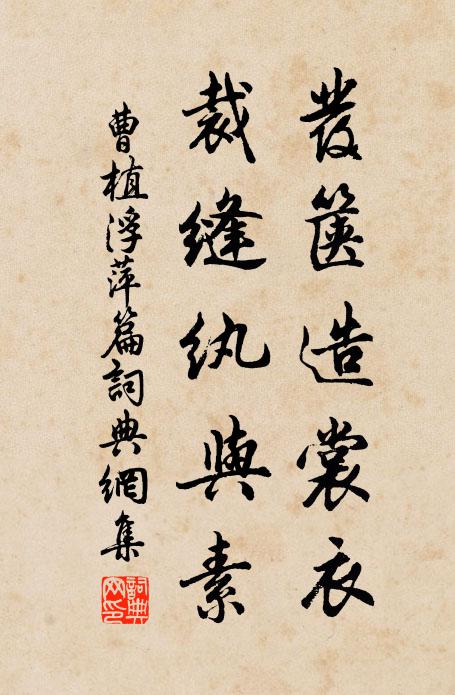 發篋造裳衣
裁縫紈與素
曹植浮萍篇詞典網集
詞典網印